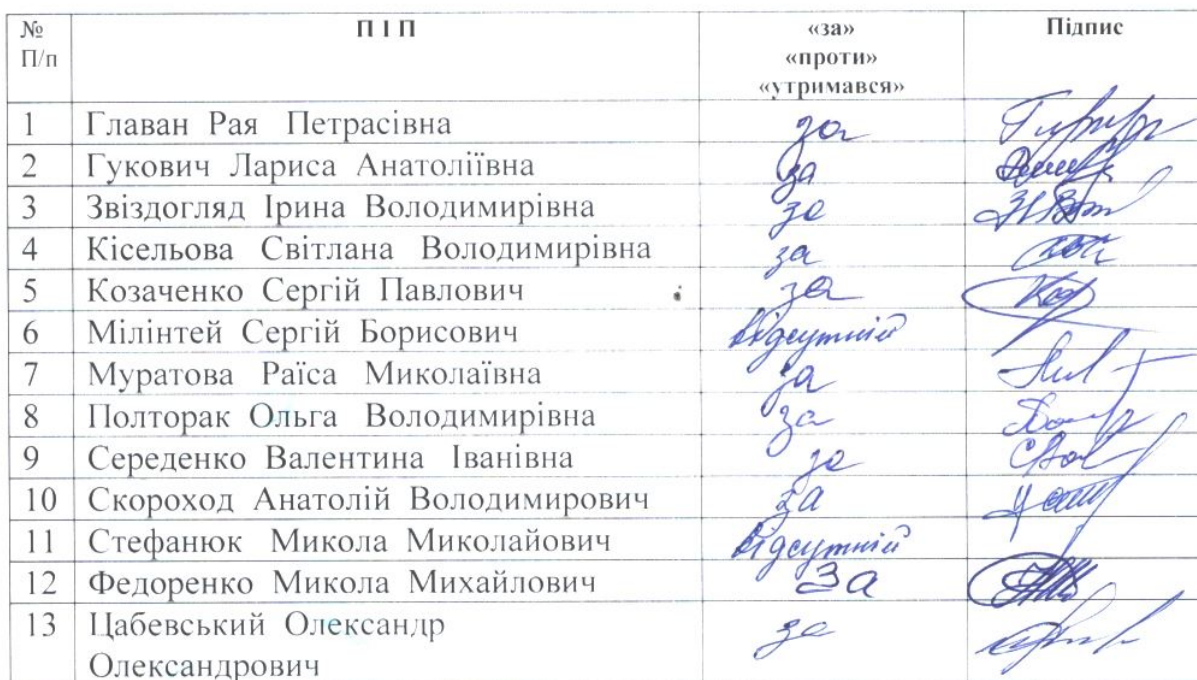 № П І П «за» Підпис
П/п «проти»
«утримався»
1 Главан Рая Петрасівна за
2 Гукович Лариса Анатоліївна за
3 Звіздогляд Ірина Володимирівна за
4 Кісельова Світлана Володимирівна за
5 Козаченко Сергій Павлович за
6 Мілінтей Сергій Борисович відсутній
7 Муратова Раїса Миколаївна за
8 Полторак Ольга Володимирівна за
9 Середенко Валентина Іванівна за
10 Скороход Анатолій Володимирович за
11 Стефанюк Микола Миколайович відсутній
12 Федоренко Микола Михайлович За
13 Цабевський Олександр за
Олександрович